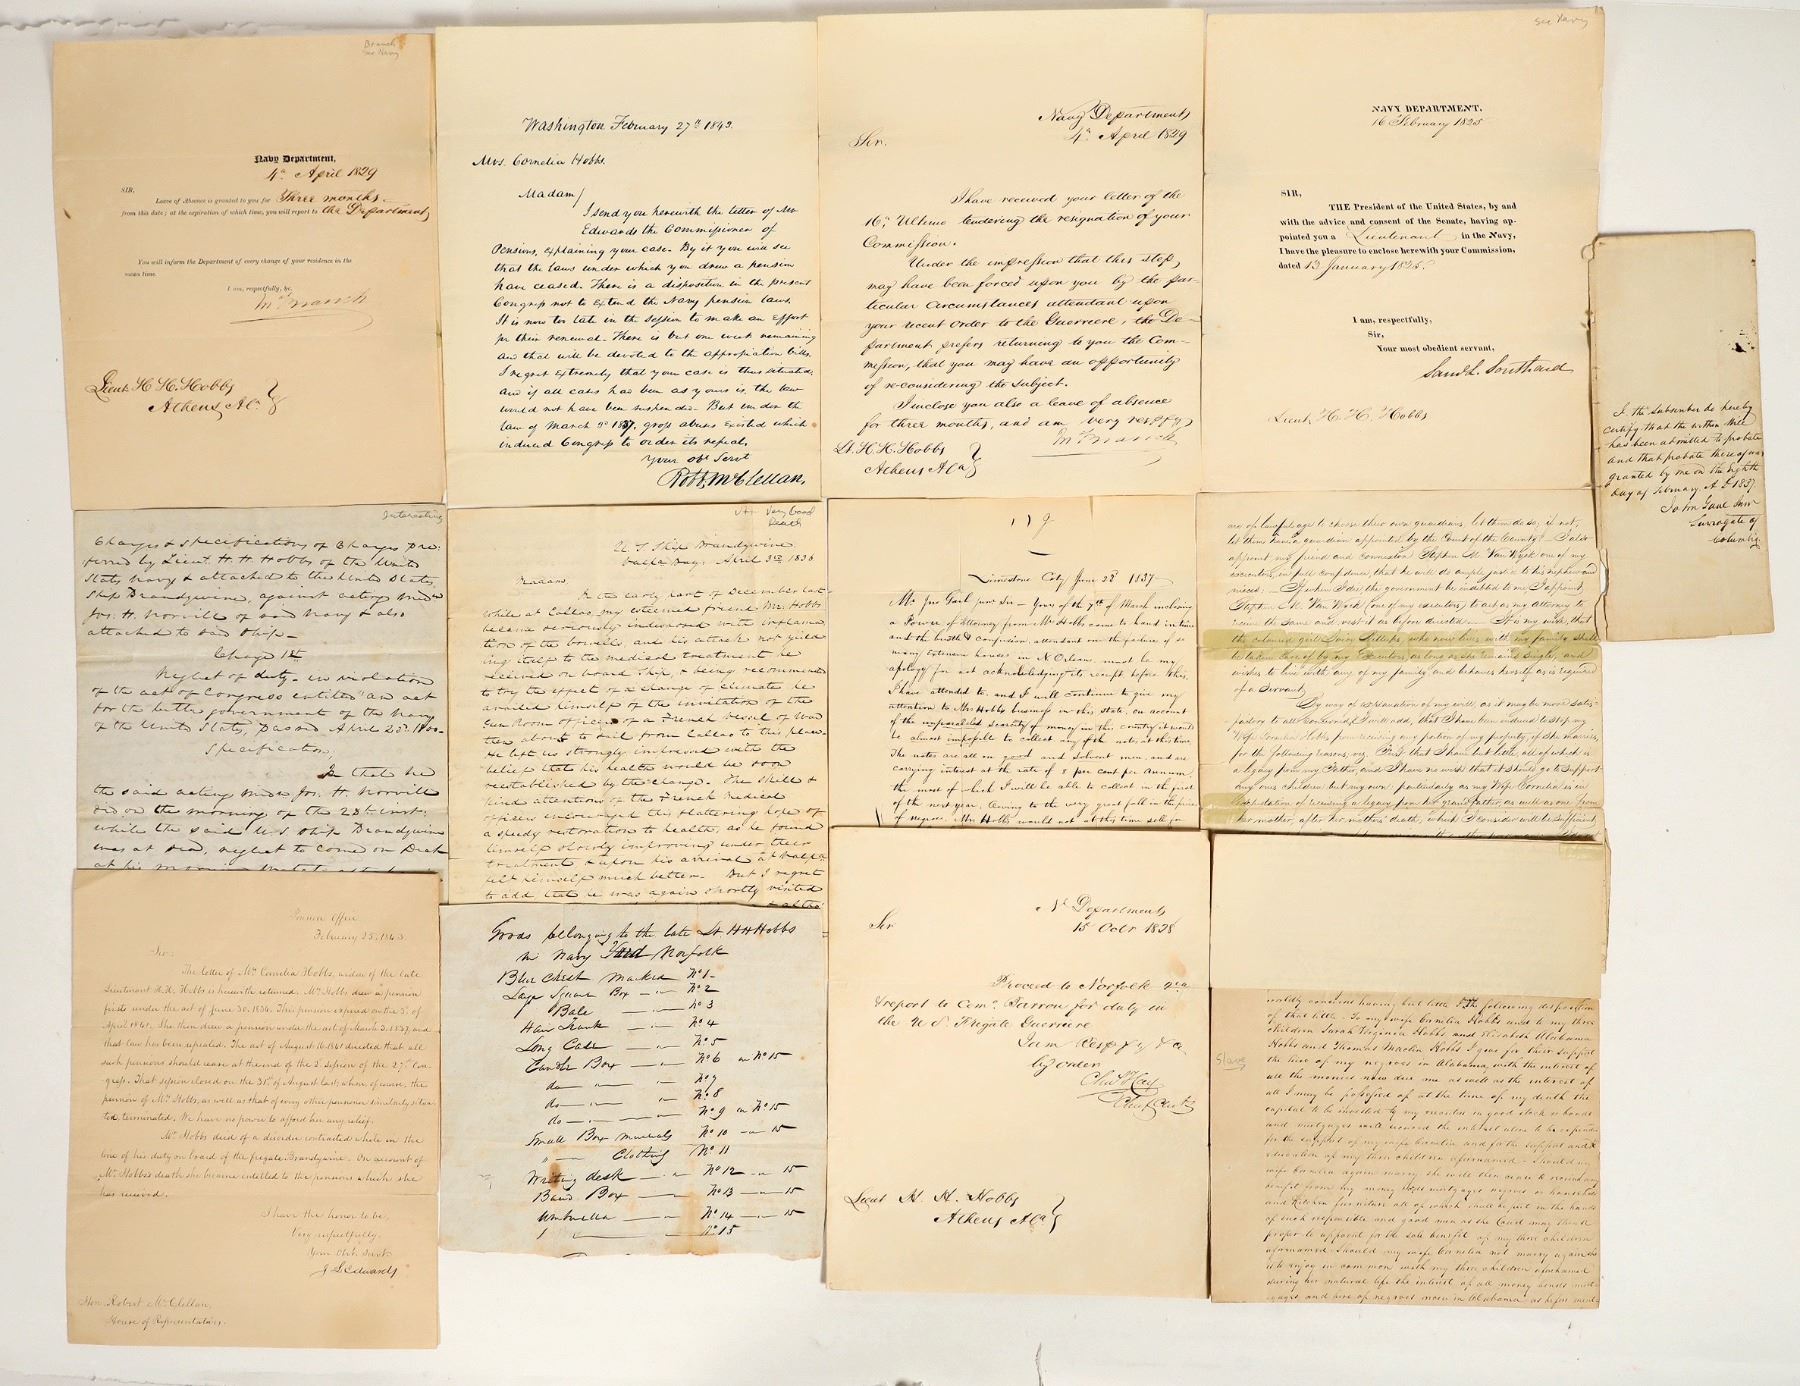 Branch
See Navy
Navy Department,
4th April 1829
SIR,
Leave of Absence is granted to you for Three months
from this date; at the expiration of which time, you will report to the Department
You will inform the Department of every change of your residence in the
mean time.
I am, respectfully, &c.
Jno Branch
Lieut. H H Hobbs
Athens Al.
Washington February 27th 1843.
Mrs. Cornelia Hobbs.
Madam/
I send you herewith the letter of Mr
Edwards the Commissioner of
Pensions, explaining your case. By it you will see
that the laws under which you drew a pension
have ceased. There is a disposition in the present
Congress not to extend the Navy pension laws.
It is now too late in the session to make an effort
for their renewal. There is but one week remaining
and that will be devoted to the appropriation bills.
I regret extremely that your case is thus situated:
and if all cases had been as yours is, the law
would not have been suspended. But under the
law of March 3d 1837, gross abuses existed which
induced Congress to order its repeal.
Your obt Servt
Robt McClellan,
Navy Department
4th April 1829
Sir.
I have received your letter of the
16th Ultimo tendering the resignation of your
Commission.
Under the impression that this step,
may have been forced upon you by the par-
ticular circumstances attendant upon
your recent order to the Guerriere, the De-
partment prefers returning to you the Com-
mission, that you may have an opportunity
of re-considering the subject.
I inclose you also a leave of absence
for three months, and am very respfy
Jno Branch
Lt. H. H. Hobbs
Athens Ala
See Navy
NAVY DEPARTMENT.
16 February 1825
SIR,
THE President of the United States, by and
with the advice and consent of the Senate, having ap-
pointed you a Lieutenant in the Navy,
I have the pleasure to enclose herewith your Commission,
dated 13 January 1825.
I am, respectfully,
Sir,
Your most obedient servant,
Saml L. Southard
Lieut. H. H. Hobbs
I the Subscriber do hereby
certify that the within Will
has been admitted to probate
and that probate thereof was
granted by me on the eighth
day of February A D 1837
John Gaul Junr
Surrogate of
Columbia
Interesting
Charges & Specifications of Charges pre-
ferred by Lieut. H. H. Hobbs of the United
States Navy & attached to the United States
Ship Brandywine, against acting Midn
Jos. H. Norvill of said Navy & also
attached to said Ship—
Charge 1st
Neglect of duty—in violation
of the act of Congress entitled "an act
for the better government of the Navy
of the United States, passed April 23d. 1800—
Specification,
In that he
the said acting Midn Jos. H. Norvill
did on the morning of the 28th inst:
while the said U S Ship Brandywine
was at sea, neglect to come on Deck
Very Good
Death
U. S. Ship Brandywine
April 3rd 1836
Madam
In the early part of December last
while at Callao, my esteemed friend, Mr. Hobbs
became seriously indisposed with inflama
tion of the bowells, and his attack not yield
ing itself to the medical treatment he
received on board ship, & being recommended
to try the effect of a change of climate he
availed himself of the invitation of the
Gun Room officers of a French Vessel of War
then about to sail from Callao to this place.
He left us strongly impressed with the
belief that his health would be soon
reestablished by the change. The skill &
kind attentions of the French Medical
officers encouraged the flattering hope of
a speedy restoration to health, as he found
himself slowly improving under their
treatment, & upon his arrival at Valpo
felt himself much better. But I regret
to add that he was again shortly visited
119
Limestone Cty June 28th 1837
Mr Jno Gail junr Sir— Yours of the 7th of March inclosing
a Power of Attorney from Mrs Hobbs came to hand in time
and the bustle & confusion attendant on the failure of so
many extensive houses in N Orleans, must be my
apology for not acknowledging its receipt before this.
I have attended to and I will continue to give my
attention to Mrs Hobbs business in this state, on account
of the unparalleled scarcity of money in this country it would
be almost impossible to collect any of the notes at this time.
The notes are all on good and solvent men, and are
carrying interest at the rate of 8 per cent per Annum,
the most of which I will be able to collect in the first
of the next year. Owing to the very great fall in the price
of negroes, Mrs Hobbs would not at this time sell for
are of lawful age to choose their own guardians, let them do so; if not,
let them have a guardian appointed by the Court of the County. I also
appoint my friend and connexion Stephen M. Van Wyck one of my
executors, in full confidence, that he will do ample justice to his nephew and
nieces:— If when I die, the government be indebted to me I appoint,
Stephen M. Van Wyck (one of my executors) to act as my attorney to
receive the same and vest it as before directed.— It is my wish, that
the coloured girl Lucy Phillips, who now lives with my family shall
be taken care of by my Executors, as long as she remains single, and
wishes to live with any of my family and behaves herself as is required
of a servant.
By way of explanation of my will, as it may be more satis-
factory to all concerned, I will add, that I have been induced to stop my
Wife Cornelia Hobbs from receiving any portion of my property if she marries,
for the following reasons, viz. First that I have but little, all of which is
a legacy from my Father, and I have no wish that it should go to support
any ones children but my own: particularly as my Wife Cornelia is in
expectation of receiving a legacy from her grandfather, as well as one from
her mother, after her mothers' death, which I consider will be sufficient
Pension Office
February 25, 1843.
Sir:
The letter of Mrs Cornelia Hobbs, widow of the late
Lieutenant H. H. Hobbs is herewith returned. Mrs Hobbs drew a pension
first under the act of June 30, 1834. This pension expired on the 3d. of
April 1841. She then drew a pension under the act of March 3, 1837, and
that law has been repealed. The act of August 16, 1841 directed that all
such pensions should cease at the end of the 2d. session of the 27th Con-
gress. That session closed on the 31st of August last; when, of course, the
pension of Mrs Hobbs, as well as that of every other pensioner similarly situa-
ted, terminated. We have no power to afford her any relief.
Mr Hobbs died of a disorder contracted while in the
line of his duty on board of the frigate Brandywine. On account of
Mr Hobbs's death she became entitled to the pensions which she
has received.
I have the honor to be,
Very respectfully,
Your Obt. Servt.
J L Edwards
Hon. Robert McClellan,
House of Representatives.
Goods belonging to the late Lt H H Hobbs
in Navy Yard Norfolk
Blue Chest Marked No 1—
Large Square Box — No 2
Bale — No 3
Hair Trunk — No 4
Long Case — No 5
Candle Box — No 6 in No 15
do — No 7
do — No 8
do — No 9 in No 15
Small Box minerals No 10 — 15
" — Clothing No 11
Writing desk — No 12 — 15
Band Box — No 13 — 15
Umbrella — No 14 — 15
1 — No 15
Ny Department
15 Octr 1828
Sir
Proceed to Norfolk and
report to Como. Barron, for duty in
the U. S. Frigate Guerriere
I am Respfy &c
by order
Chas Hay
Chief Clerk
Lieut H. H. Hobbs
Athens Ala
Slave
worldly concerns having but little & the following disposition
of that little. To my wife Cornelia Hobbs and to my three
children Sarah Virginia Hobbs and Elizabeth Alabama
Hobbs and Thomas Maclin Hobbs I give for their support
the hire of my negroes in Alabama, with the interest of
all the monies now due me as well as the interest of
all I may be possessed of at the time of my death the
capital to be invested by my executors in good stock or bonds
and mortgages well secured the interest alone to be expended
for the support of my wife Cornelia and for the support and
education of my three children aforenamed — Should my
wife Cornelia again marry she will then cease to receive any
benefit from my money bonds mortgages negroes or household
and kitchen furniture all of which shall be put in the hands
of such responsible and good men as the Court may think
proper to appoint for the sole benefit of my three children
aforenamed. Should my wife Cornelia not marry again she
is to enjoy in common with my three children aforenamed
during her natural life the interest of all money bonds mort
gages and hire of negroes now in Alabama as before ment